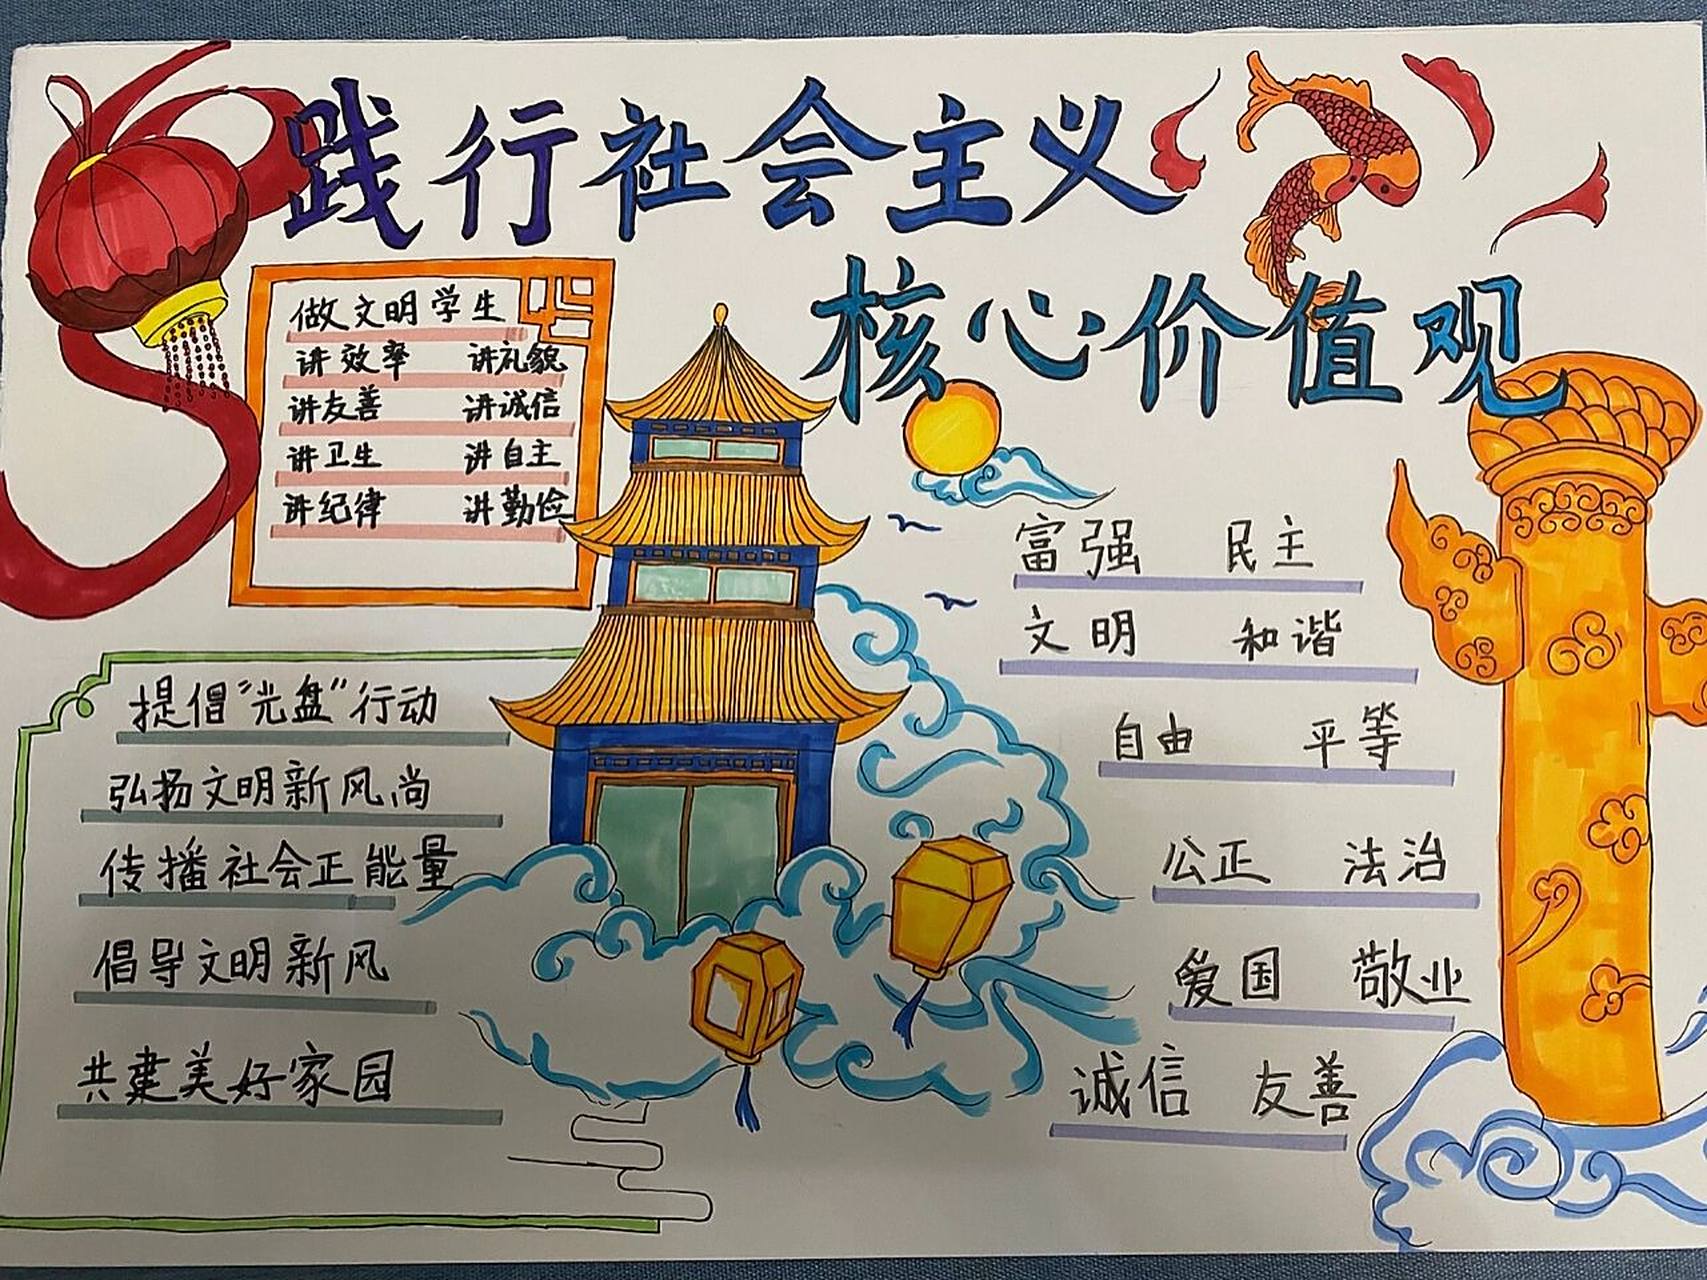 践行社会主义
核心价值观
做文明学生
讲效率 讲礼貌
讲友善 讲诚信
讲卫生 讲自主
讲纪律 讲勤俭
提倡“光盘”行动
弘扬文明新风尚
传播社会正能量
倡导文明新风
共建美好家园
富强 民主
文明 和谐
自由 平等
公正 法治
爱国 敬业
诚信 友善